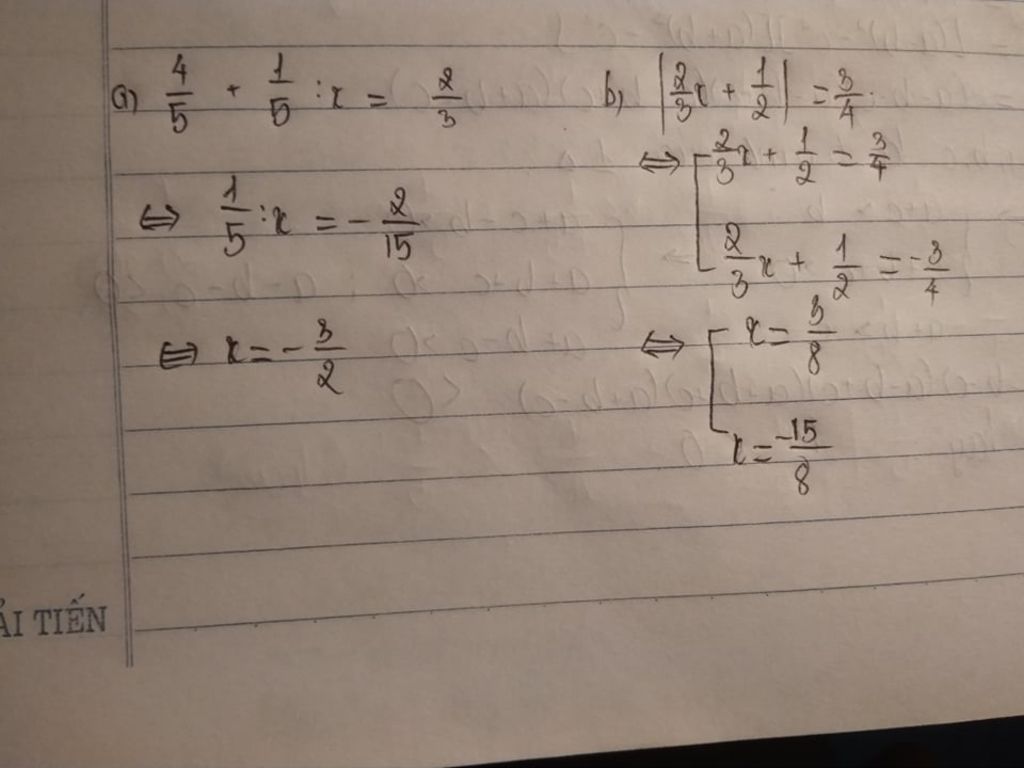 a) 4/5 + 1/5 : x = 2/3
⇔ 1/5 : x = - 2/15
⇔ x = - 3/2
b) |2/3 x + 1/2| = 3/4.
⇔ [ 2/3 x + 1/2 = 3/4
2/3 x + 1/2 = -3/4
⇔ [ x = 3/8
x = -15/8
ẢI TIẾN